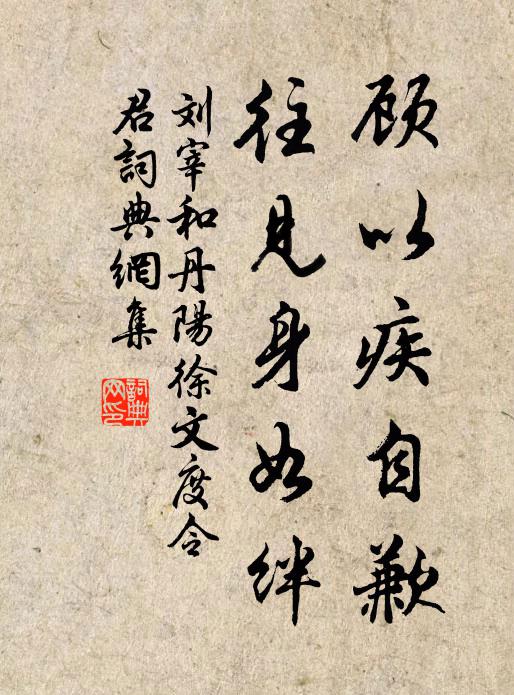 顾以疾自歉
往见身如绊
刘宰和丹陽徐文度令
君詞典網集
詞典网印